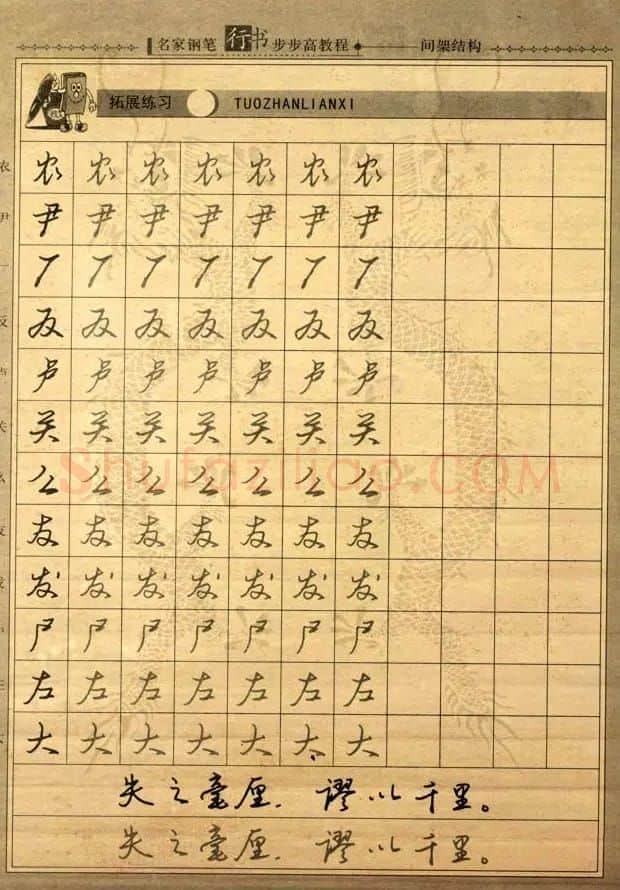 名家钢笔 行书 步步高教程 间架结构
拓展练习 TUOZHANLIANXI
农 农 农 农 农 农 农
尹 尹 尹 尹 尹 尹 尹
丆 丆 丆 丆 丆 丆 丆
反 反 反 反 反 反 反
卢 卢 卢 卢 卢 卢 卢
关 关 关 关 关 关 关
么 么 么 么 么 么 么
友 友 友 友 友 友 友
发 发 发 发 发 发 发
尸 尸 尸 尸 尸 尸 尸
左 左 左 左 左 左 左
大 大 大 大 大 大 大
失之毫厘，谬以千里。
失之毫厘，谬以千里。
Shufaziliao.COM